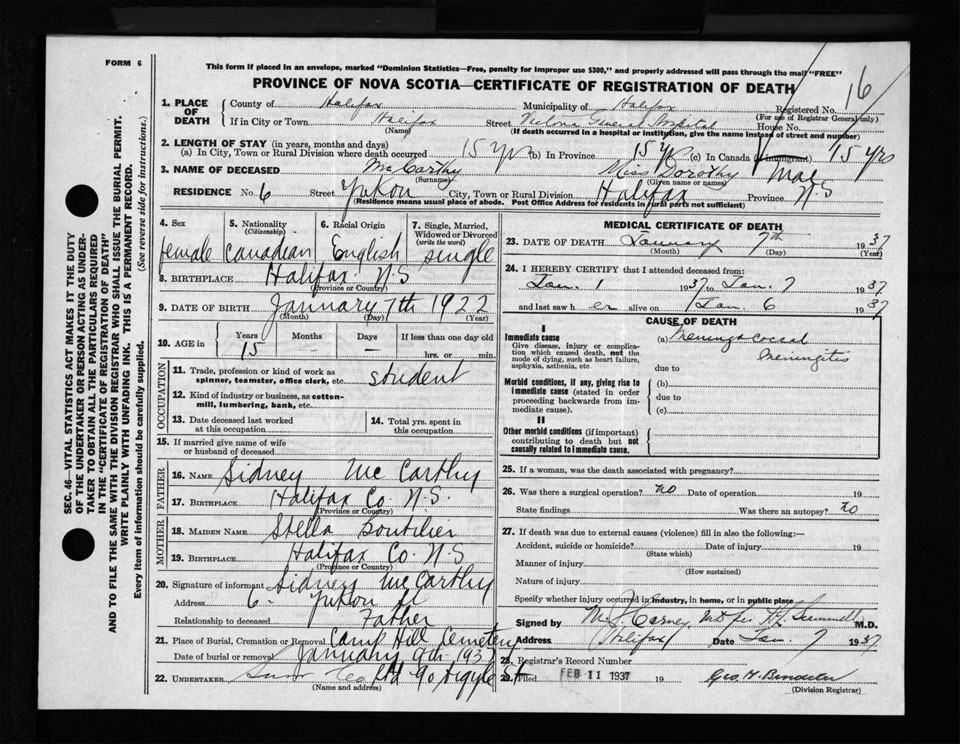 FORM 6
This form if placed in an envelope, marked "Dominion Statistics—Free, penalty for improper use $300," and properly addressed will pass through the mail "FREE"
PROVINCE OF NOVA SCOTIA—CERTIFICATE OF REGISTRATION OF DEATH
16
1. PLACE OF DEATH
County of Halifax Municipality of Halifax Registered No.
(For use of Registrar General only)
If in City or Town Halifax Street Victoria General Hospital House No.
(Name) (If death occurred in a hospital or institution, give the name instead of street and number)
2. LENGTH OF STAY (in years, months and days)
(a) In City, Town or Rural Division where death occurred 15 yrs (b) In Province 15 yrs (c) In Canada (if immigrant) 15 yrs
3. NAME OF DECEASED McCarthy Miss Dorothy Mae
(Surname) (Given name or names)
RESIDENCE No. 6 Street Yukon City, Town or Rural Division Halifax Province N.S
(Residence means usual place of abode. Post Office Address for residents in rural parts not sufficient)
4. Sex
female
5. Nationality
(Citizenship)
Canadian
6. Racial Origin
English
7. Single, Married, Widowed or Divorced
(write the word)
single
8. BIRTHPLACE Halifax N.S
(Province or Country)
9. DATE OF BIRTH January 7th 1922
(Month) (Day) (Year)
10. AGE in Years Months Days If less than one day old
15 — — hrs. or min.
OCCUPATION
11. Trade, profession or kind of work as spinner, teamster, office clerk, etc. student
12. Kind of industry or business, as cotton-mill, lumbering, bank, etc.
13. Date deceased last worked at this occupation
14. Total yrs. spent in this occupation
15. If married give name of wife or husband of deceased
FATHER
16. NAME Sidney McCarthy
17. BIRTHPLACE Halifax Co. N.S.
(Province or Country)
MOTHER
18. MAIDEN NAME Stella Boutilier
19. BIRTHPLACE Halifax Co N.S
(Province or Country)
20. Signature of informant Sidney McCarthy
Address 6 Yukon St
Relationship to deceased Father
21. Place of Burial, Cremation or Removal Camp Hill Cemetery
Date of burial or removal January 9th 1937
22. UNDERTAKER Snow Co Ltd 90 Argyle St
(Name and address)
MEDICAL CERTIFICATE OF DEATH
23. DATE OF DEATH January 7th 1937
(Month) (Day) (Year)
24. I HEREBY CERTIFY that I attended deceased from:
Jan. 1 1937 to Jan. 7 1937
and last saw her alive on Jan. 6 1937
CAUSE OF DEATH
I
Immediate cause
Give disease, injury or complication which caused death, not the mode of dying, such as heart failure, asphyxia, asthenia, etc
(a) Meningococcal Meningitis
due to
Morbid conditions, if any, giving rise to immediate cause (stated in order proceeding backwards from immediate cause).
(b)
due to
(c)
II
Other morbid conditions (if important) contributing to death but not causally related to immediate cause.
25. If a woman, was the death associated with pregnancy?
26. Was there a surgical operation? no Date of operation 19
State findings Was there an autopsy? no
27. If death was due to external causes (violence) fill in also the following:—
Accident, suicide or homicide? Date of injury 19
(State which)
Manner of injury
(How sustained)
Nature of injury
Specify whether injury occurred in industry, in home, or in public place
Signed by M. J. Carney M.D. M.D.
Address Halifax Date Jan. 7 1937
28. Registrar's Record Number
29. Filed FEB 11 1937 19
(Division Registrar)
SEC. 46—VITAL STATISTICS ACT MAKES IT THE DUTY
OF THE UNDERTAKER OR PERSON ACTING AS UNDER-
TAKER TO OBTAIN ALL THE PARTICULARS REQUIRED
IN THE "CERTIFICATE OF REGISTRATION OF DEATH"
AND TO FILE THE SAME WITH THE DIVISION REGISTRAR WHO SHALL ISSUE THE BURIAL PERMIT.
WRITE PLAINLY WITH UNFADING INK. THIS IS A PERMANENT RECORD.
Every item of information should be carefully supplied. (See reverse side for instructions.)